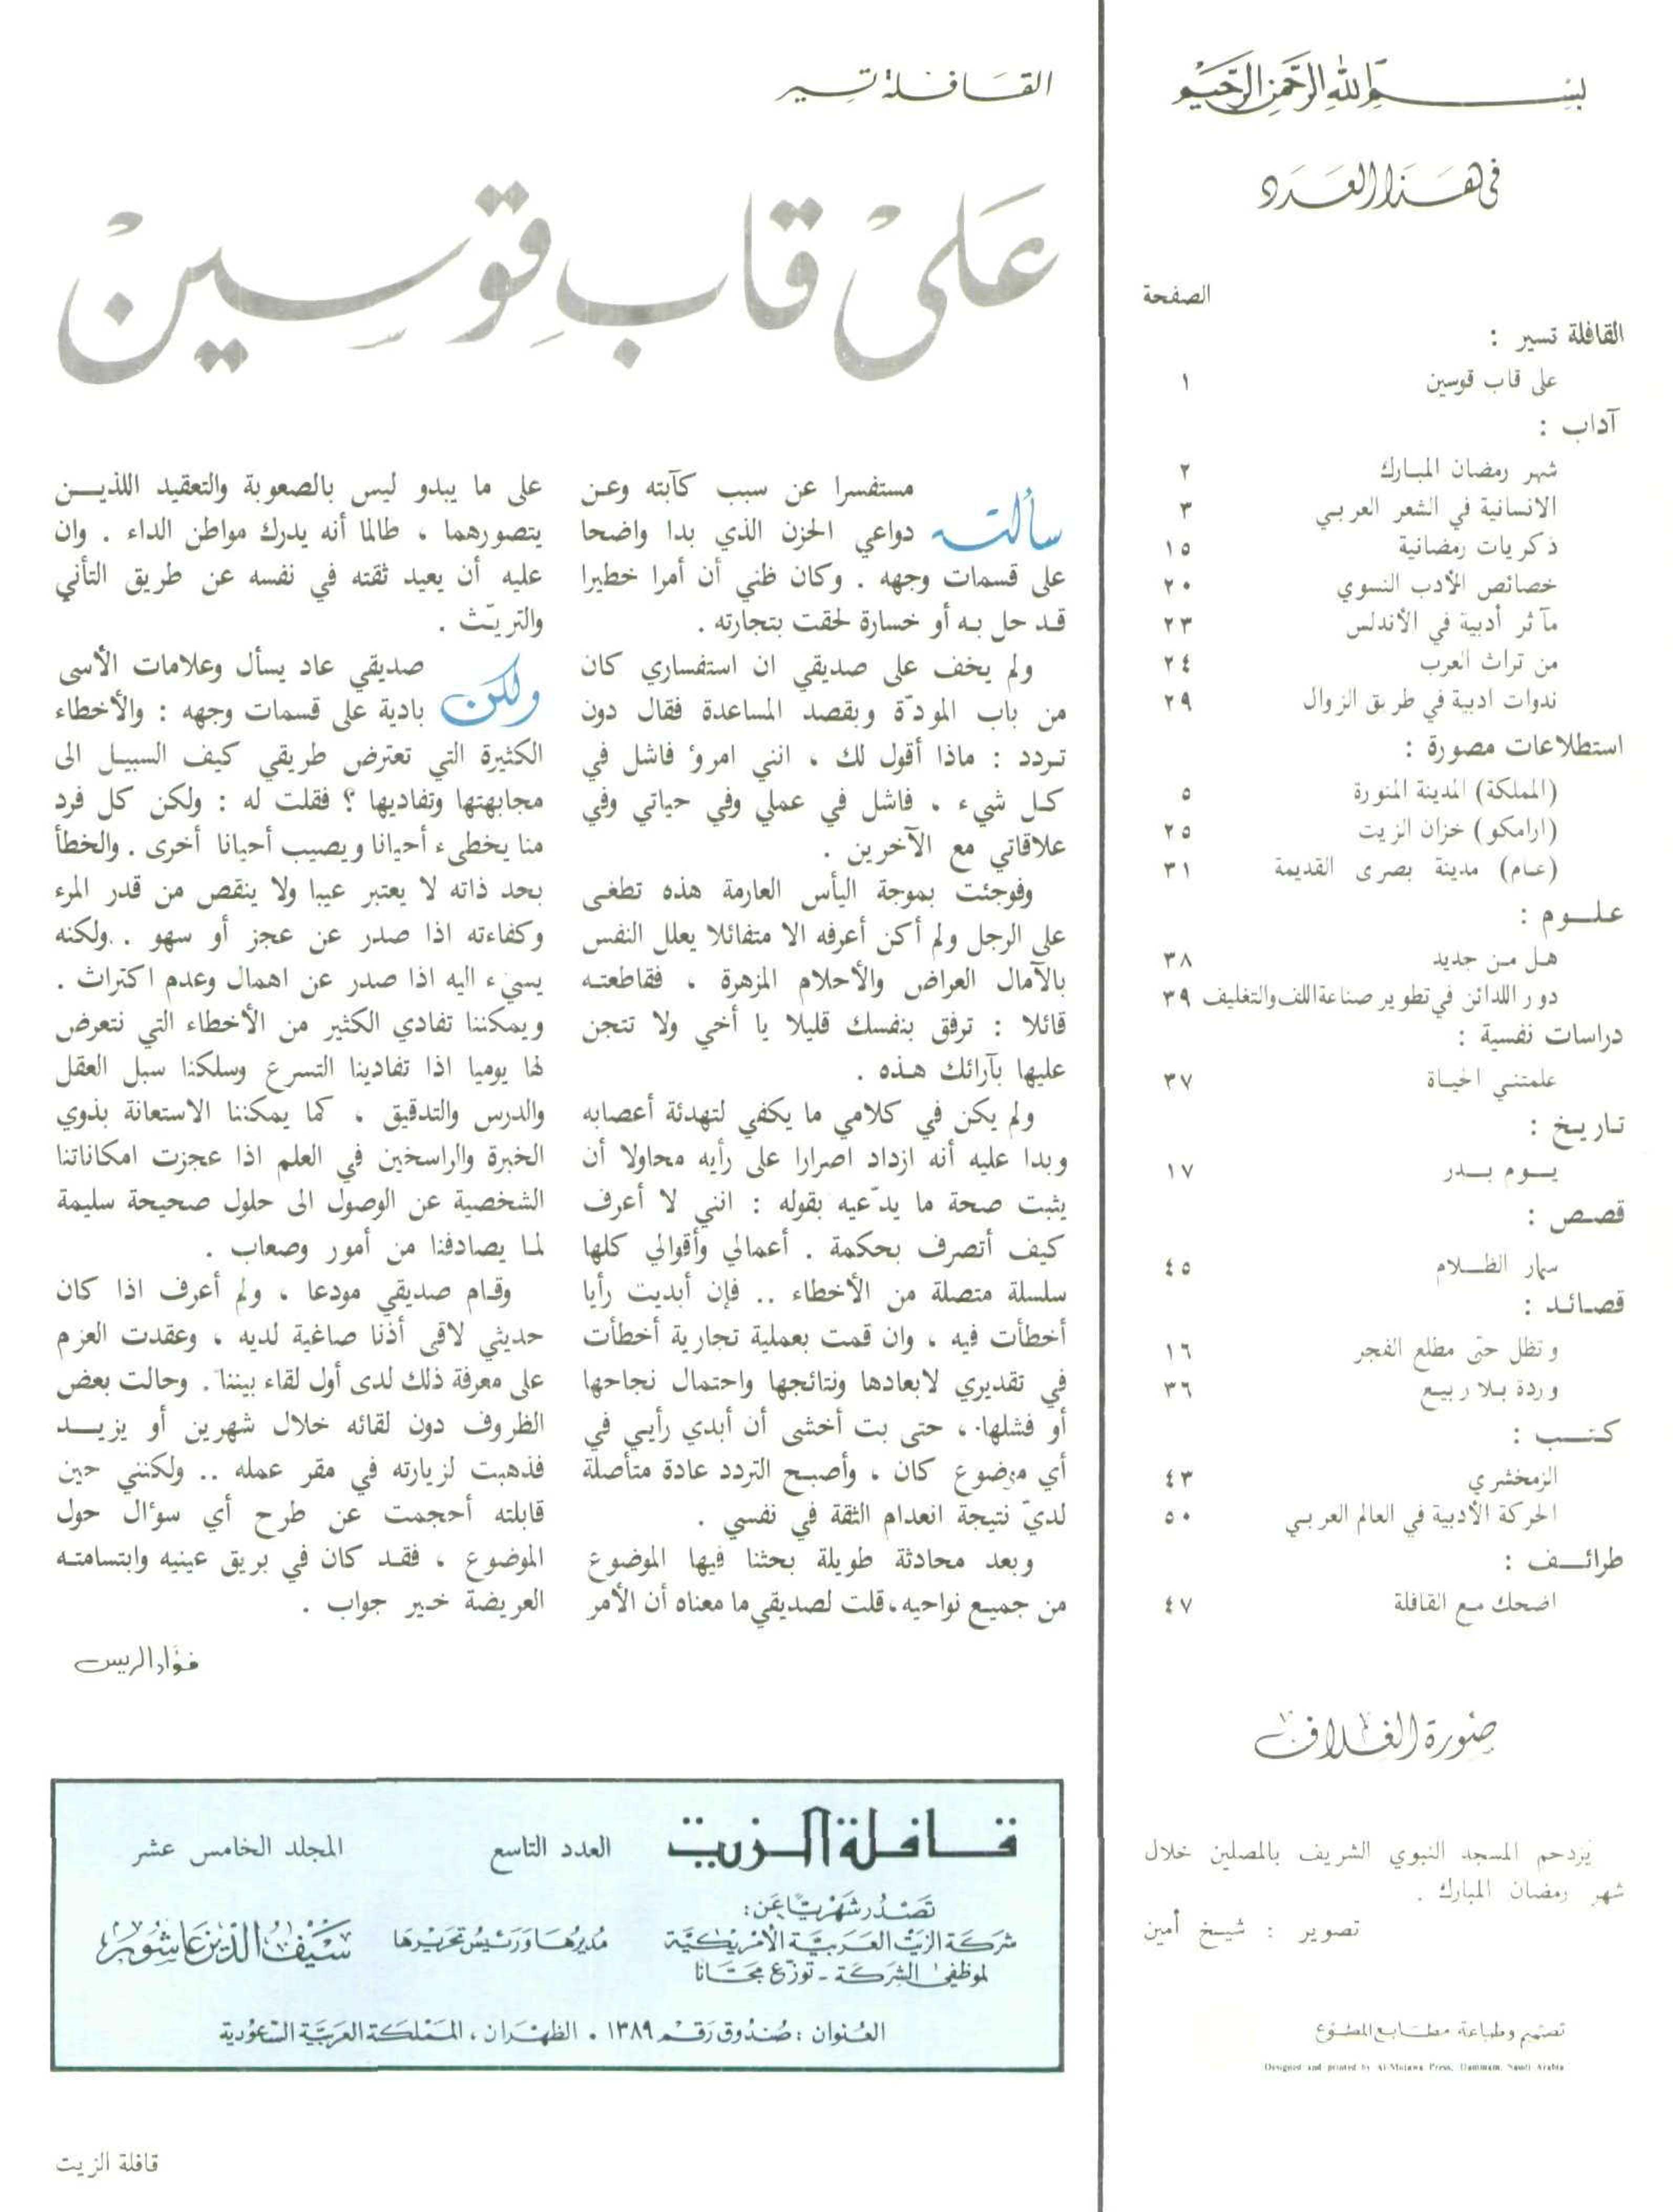 بسم الله الرحمن الرحيم
في هذا العدد
الصفحة
القافلة تسير :
على قاب قوسين ١
آداب :
شهر رمضان المبارك ٢
الانسانية في الشعر العربي ٣
ذكريات رمضانية ١٥
خصائص الأدب النسوي ٢٠
مآثر أدبية في الأندلس ٢٣
من تراث العرب ٢٤
ندوات ادبية في طريق الزوال ٢٩
استطلاعات مصورة :
(المملكة) المدينة المنورة ٥
(ارامكو) خزان الزيت ٢٥
(عام) مدينة بصرى القديمة ٣١
علوم :
هل من جديد ٣٨
دور اللدائن في تطوير صناعة اللف والتغليف ٣٩
دراسات نفسية :
علمتني الحياة ٣٧
تاريخ :
يوم بدر ١٧
قصص :
سمار الظلام ٤٥
قصائد :
وتظل حتى مطلع الفجر ١٦
وردة بلا ربيع ٣٦
كتب :
الزمخشري ٤٣
الحركة الأدبية في العالم العربي ٥٠
طرائف :
اضحك مع القافلة ٤٧
صورة الغلاف
يزدحم المسجد النبوي الشريف بالمصلين خلال
شهر رمضان المبارك .
تصوير : شيخ أمين
تصميم وطباعة مطابع المطوع
Designed and printed by Al-Mutawa Press, Dammam, Saudi Arabia
القافلة تسير
على قاب قوسين
سألته مستفسرا عن سبب كآبته وعن
دواعي الحزن الذي بدا واضحا
على قسمات وجهه . وكان ظني أن أمرا خطيرا
قد حل به أو خسارة لحقت بتجارته .
ولم يخف على صديقي ان استفساري كان
من باب المودّة وبقصد المساعدة فقال دون
تردد : ماذا أقول لك ، انني امرؤ فاشل في
كل شيء . فاشل في عملي وفي حياتي وفي
علاقاتي مع الآخرين .
وفوجئت بموجة اليأس العارمة هذه تطغى
على الرجل ولم أكن أعرفه الا متفائلا يعلل النفس
بالآمال العراض والأحلام المزهرة ، فقاطعته
قائلا : ترفق بنفسك قليلا يا أخي ولا تتجن
عليها بآرائك هذه .
ولم يكن في كلامي ما يكفي لتهدئة أعصابه
وبدا عليه أنه ازداد اصرارا على رأيه محاولا أن
يثبت صحة ما يدّعيه بقوله : انني لا أعرف
كيف أتصرف بحكمة . أعمالي وأقوالي كلها
سلسلة متصلة من الأخطاء .. فإن أبديت رأيا
أخطأت فيه ، وان قمت بعملية تجارية أخطأت
في تقديري لابعادها ونتائجها واحتمال نجاحها
أو فشلها ، حتى بت أخشى أن أبدي رأيي في
أي موضوع كان ، وأصبح التردد عادة متأصلة
لديّ نتيجة انعدام الثقة في نفسي .
وبعد محادثة طويلة بحثنا فيها الموضوع
من جميع نواحيه ، قلت لصديقي ما معناه أن الأمر
على ما يبدو ليس بالصعوبة والتعقيد اللذين
يتصورهما ، طالما أنه يدرك مواطن الداء . وان
عليه أن يعيد ثقته في نفسه عن طريق التأني
والتريّث .
ولكن صديقي عاد يسأل وعلامات الأسى
بادية على قسمات وجهه : والأخطاء
الكثيرة التي تعترض طريقي كيف السبيل الى
مجابهتها وتفاديها ؟ فقلت له : ولكن كل فرد
منا يخطىء أحيانا ويصيب أحيانا أخرى . والخطأ
بحد ذاته لا يعتبر عيبا ولا ينقص من قدر المرء
وكفاءته اذا صدر عن عجز أو سهو .. ولكنه
يسيء اليه اذا صدر عن اهمال وعدم اكتراث .
ويمكننا تفادي الكثير من الأخطاء التي نتعرض
لها يوميا اذا تفادينا التسرع وسلكنا سبل العقل
والدرس والتدقيق ، كما يمكننا الاستعانة بذوي
الخبرة والراسخين في العلم اذا عجزت امكاناتنا
الشخصية عن الوصول الى حلول صحيحة سليمة
لما يصادفنا من أمور وصعاب .
وقام صديقي مودعا ، ولم أعرف اذا كان
حديثي لاقى أذنا صاغية لديه ، وعقدت العزم
على معرفة ذلك لدى أول لقاء بيننا . وحالت بعض
الظروف دون لقائه خلال شهرين أو يزيد
فذهبت لزيارته في مقر عمله .. ولكنني حين
قابلته أحجمت عن طرح أي سؤال حول
الموضوع ، فقد كان في بريق عينيه وابتسامته
العريضة خير جواب .
فؤاد الريس
قافلة الزيت العدد التاسع المجلد الخامس عشر
تصدر شهريًا عن:
شركة الزيت العربية الأمريكية مديرها ورئيس تحريرها سيف الدين عاشور
لموظفي الشركة - توزع مجانا
العنوان : صندوق رقم ١٣٨٩ . الظهران ، المملكة العربية السعودية
قافلة الزيت